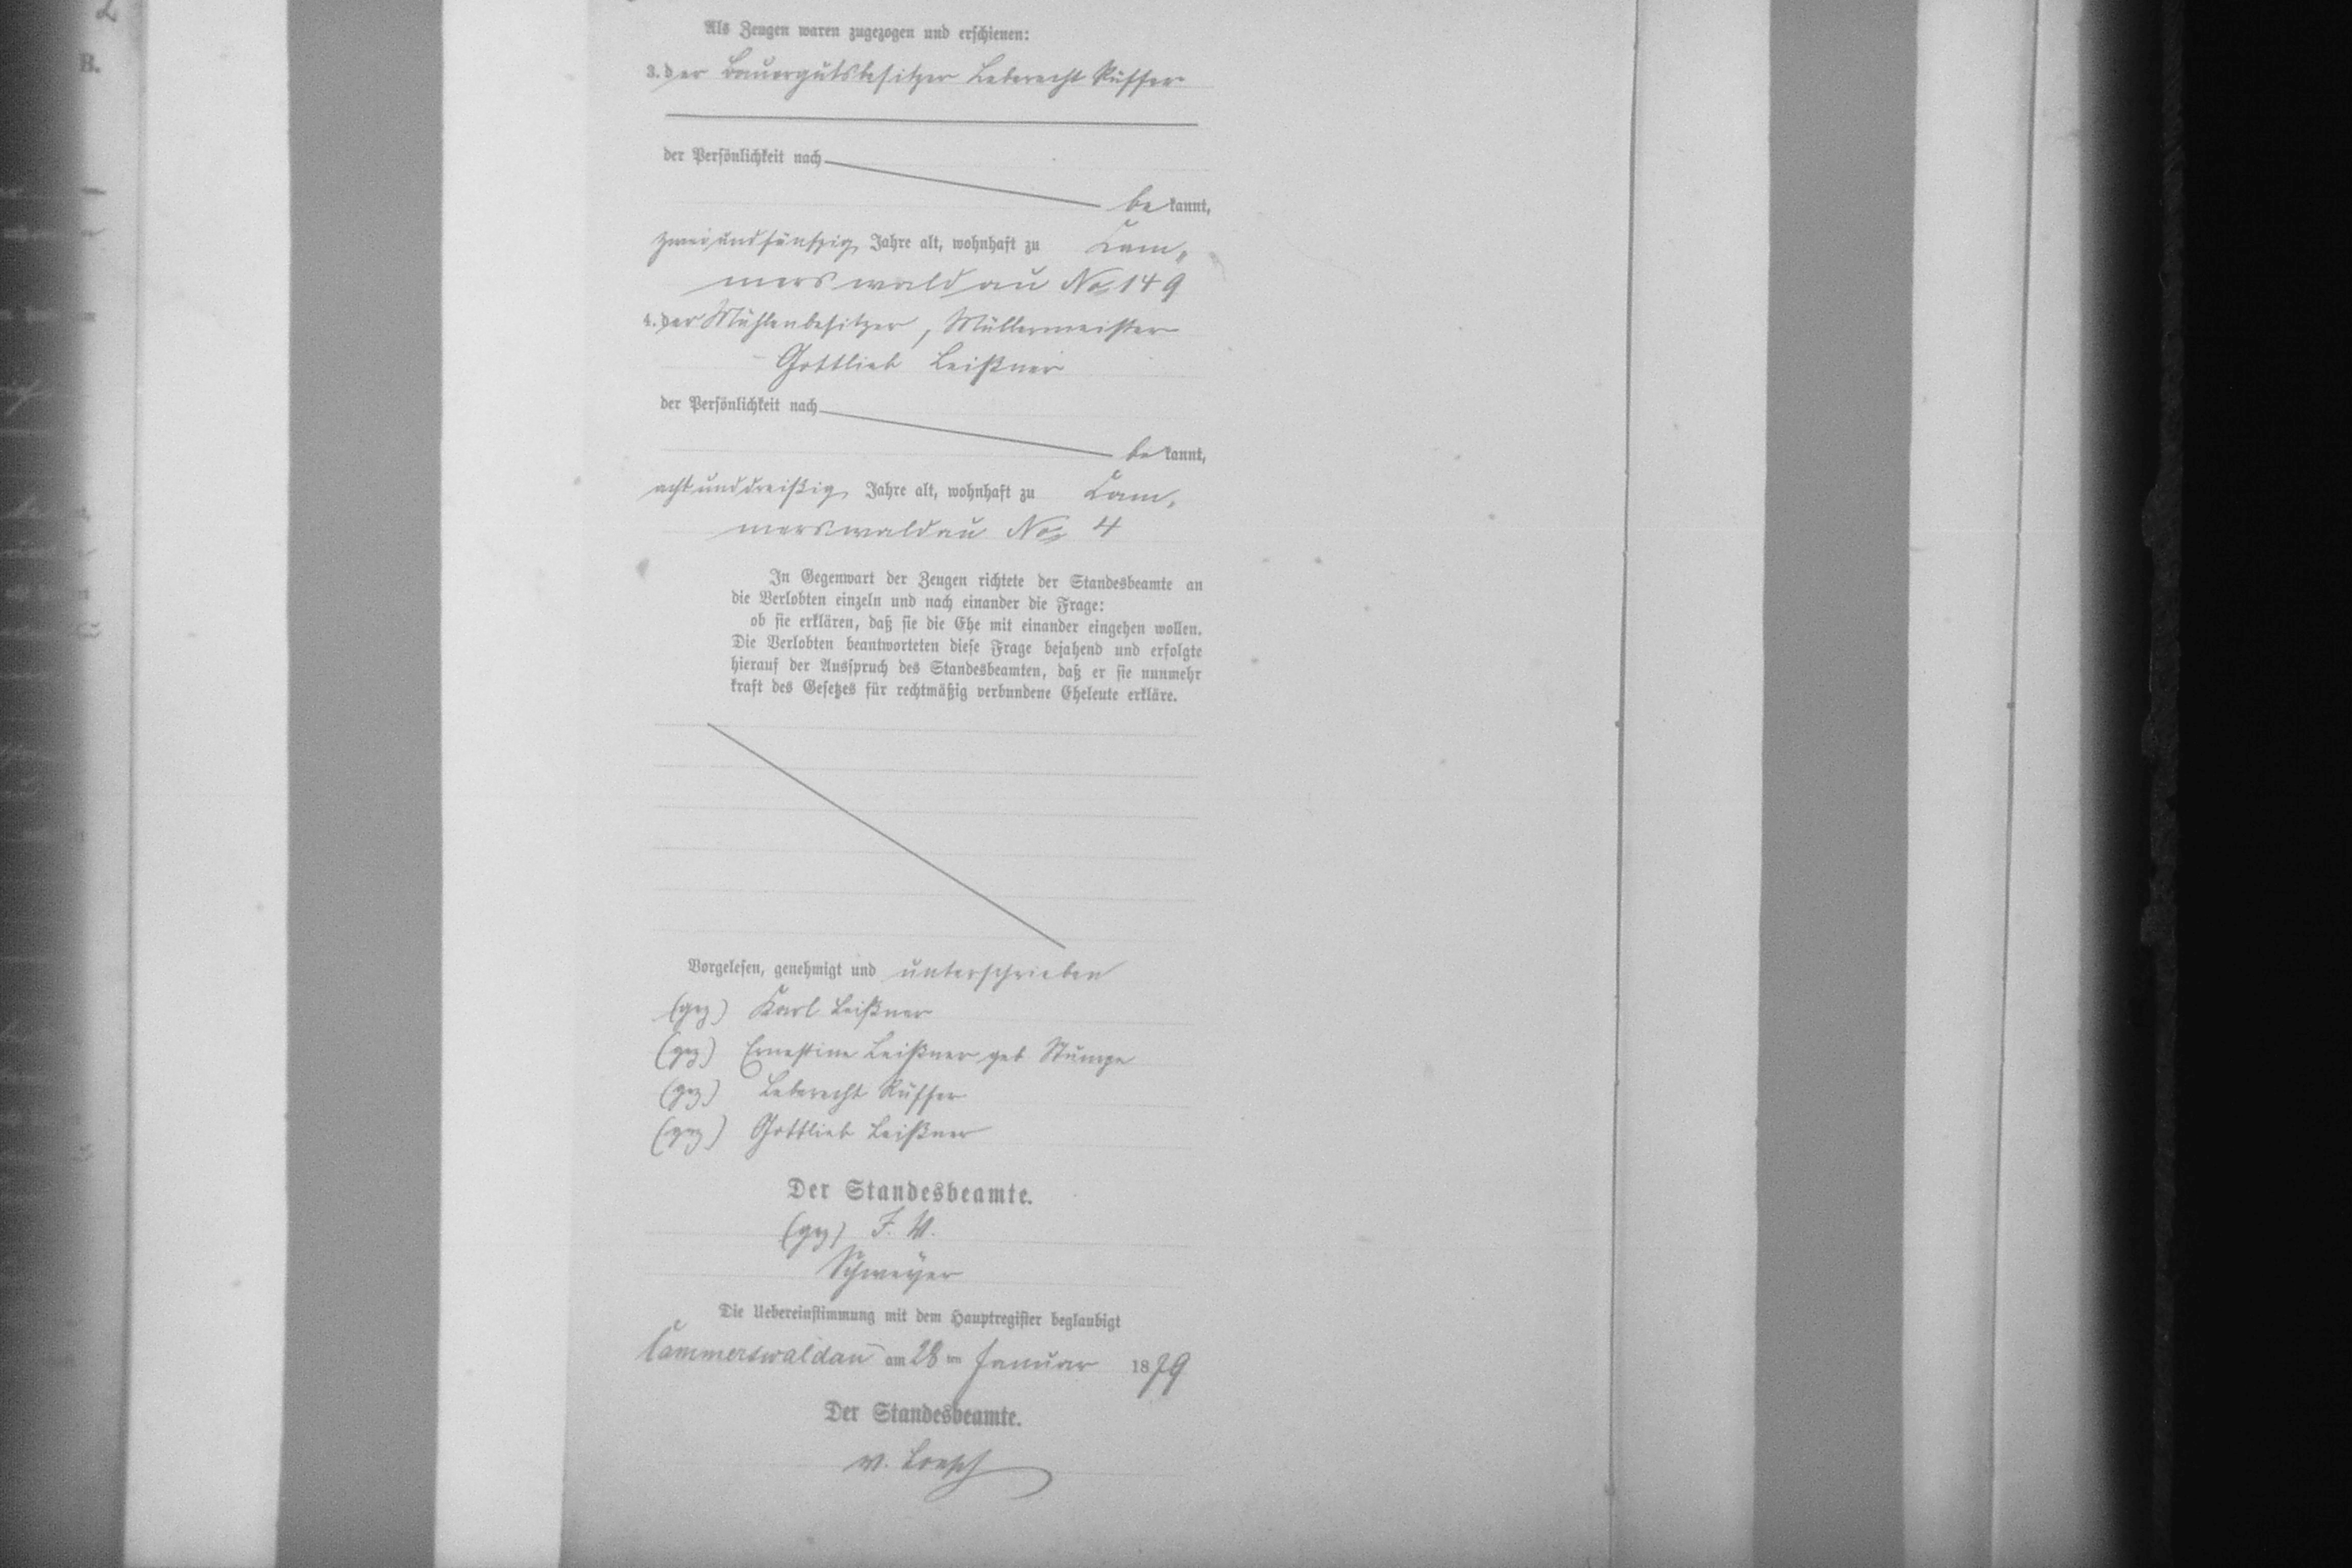 Als Zeugen waren zugezogen und erschienen:
3. der Bauergutsbesitzer Leberecht Rüffer
der Persönlichkeit nach
bekannt,
zweiundfünfzig Jahre alt, wohnhaft zu Cam„
merswaldau No 149
4. der Mühlenbesitzer, Müllermeister
Gottlieb Leißner
der Persönlichkeit nach
bekannt,
achtunddreißig Jahre alt, wohnhaft zu Cam„
merswaldau No 4
In Gegenwart der Zeugen richtete der Standesbeamte an
die Verlobten einzeln und nach einander die Frage:
ob sie erklären, daß sie die Ehe mit einander eingehen wollen.
Die Verlobten beantworteten diese Frage bejahend und erfolgte
hierauf der Ausspruch des Standesbeamten, daß er sie nunmehr
kraft des Gesetzes für rechtmäßig verbundene Eheleute erkläre.
Vorgelesen, genehmigt und unterschrieben
(gez) Karl Leißner
(gez) Ernestine Leißner geb Stumpe
(gez) Leberecht Rüffer
(gez) Gottlieb Leißner
Der Standesbeamte.
(gez)
Schweyer
Die Uebereinstimmung mit dem Hauptregister beglaubigt
Cammerswaldau am 28ten Januar 1879
Der Standesbeamte.
v. Loesch
B.